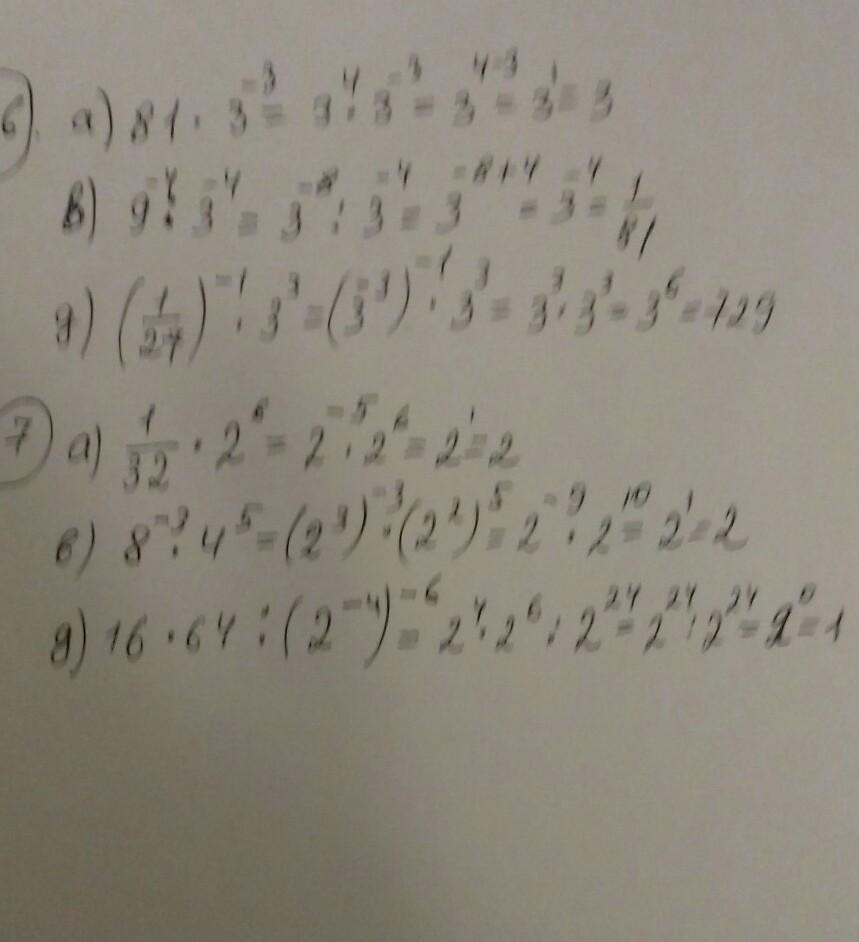 6). а) 81 · 3⁻³ = 3⁴ · 3⁻³ = 3⁴⁻³ = 3¹ = 3
в) 9⁻⁴ : 3⁻⁴ = 3⁻⁸ : 3⁻⁴ = 3⁻⁸⁺⁴ = 3⁻⁴ = 1/81
д) (1/27)⁻¹ · 3³ = (3⁻³)⁻¹ · 3³ = 3³ · 3³ = 3⁶ = 729
7) а) 1/32 · 2⁶ = 2⁻⁵ · 2⁶ = 2¹ = 2
в) 8⁻³ · 4⁵ = (2³)⁻³ · (2²)⁵ = 2⁻⁹ · 2¹⁰ = 2¹ = 2
д) 16 · 64 : (2⁻⁴)⁻⁶ = 2⁴ · 2⁶ : 2²⁴ = 2²⁴ : 2²⁴ = 2⁰ = 1